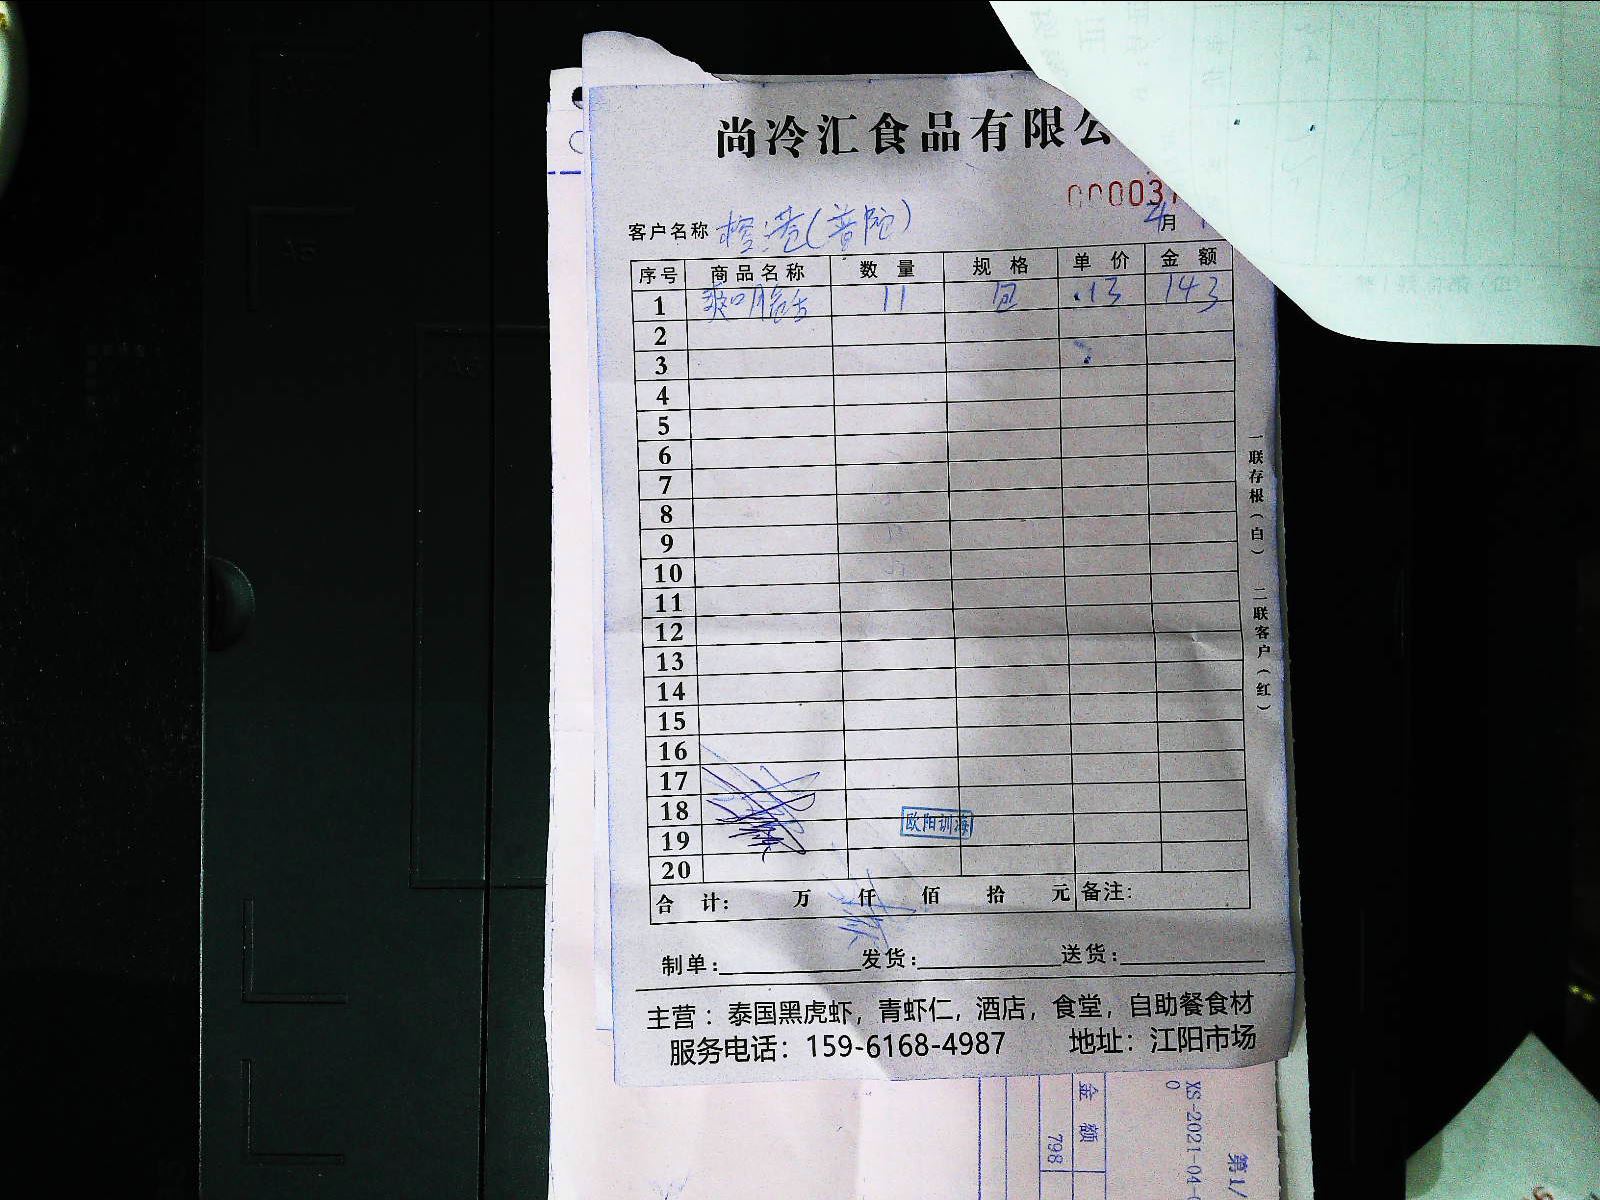 尚冷汇食品有限公
00003
客户名称 (普陀) 4月
序号 商品名称 数量 规格 单价 金额
1 11 包 13 143
2
3
4
5
6
7
8
9
10
11
12
13
14
15
16
17
18
19
20
欧阳训海
合计: 万 仟 佰 拾 元 备注:
制单: 发货: 送货:
主营：泰国黑虎虾，青虾仁，酒店，食堂，自助餐食材
服务电话：159-6168-4987 地址：江阳市场
一联存根(白) 二联客户(红)
金额
798
XS-2021-04-
0
第1/